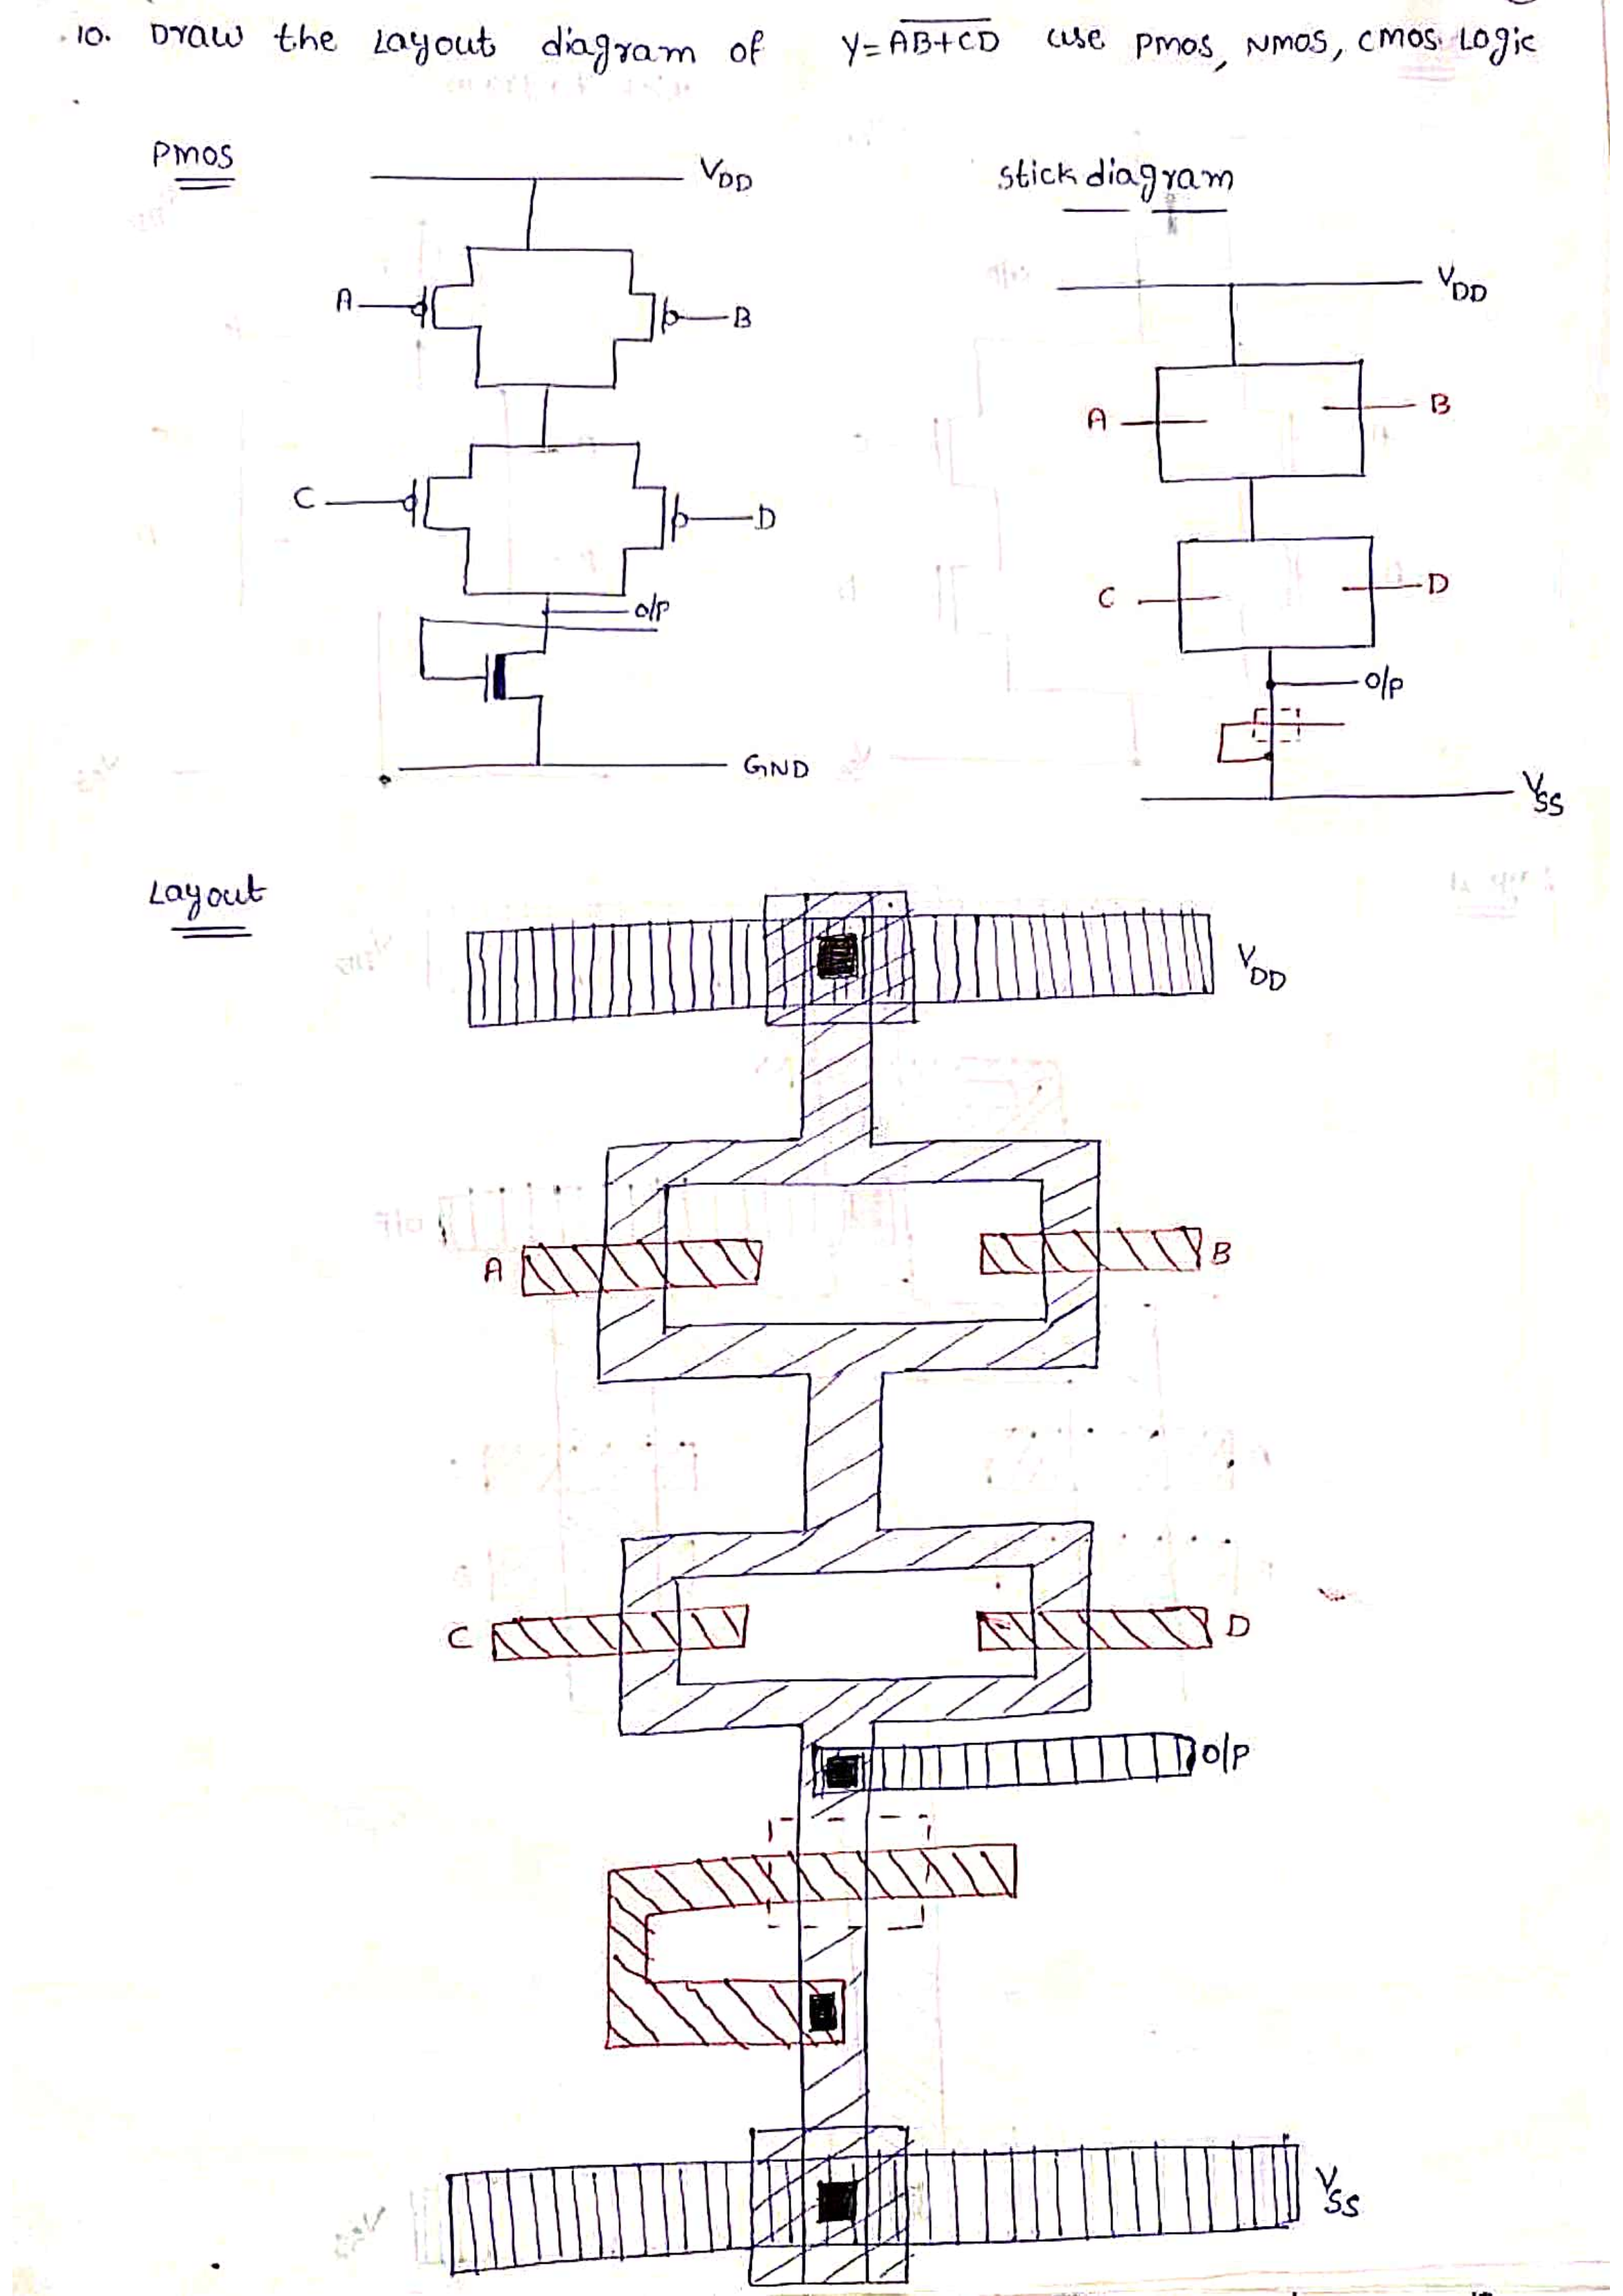 10. Draw the Layout diagram of Y=\overline{AB+CD} use PMOS, NMOS, CMOS Logic
PMOS
VDD
stick diagram
VDD
A
B
A
B
C
D
C
D
O/P
O/P
GND
VSS
Layout
VDD
A
B
C
D
O/P
VSS